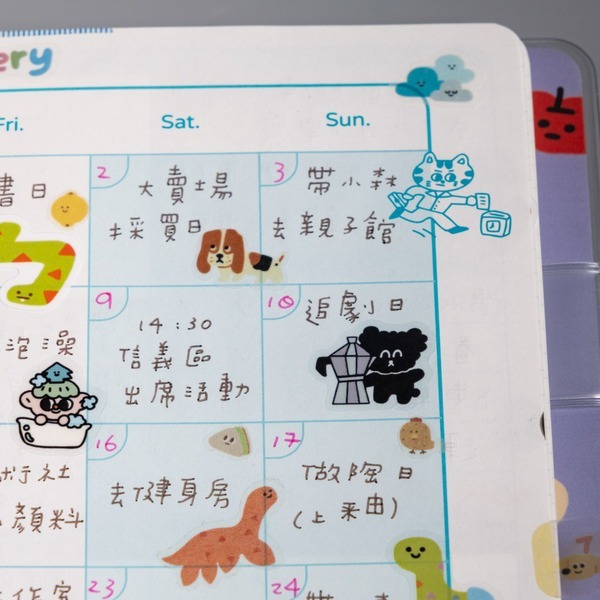 ery
Fri.
Sat.
Sun.
書日
2
大賣場
採買日
3
帶小森
去親子館
泡澡
9
14:30
信義區
出席活動
10
追劇小日
社
顏料
16
去健身房
17
做陶日
(上釉由)
作家
23
24